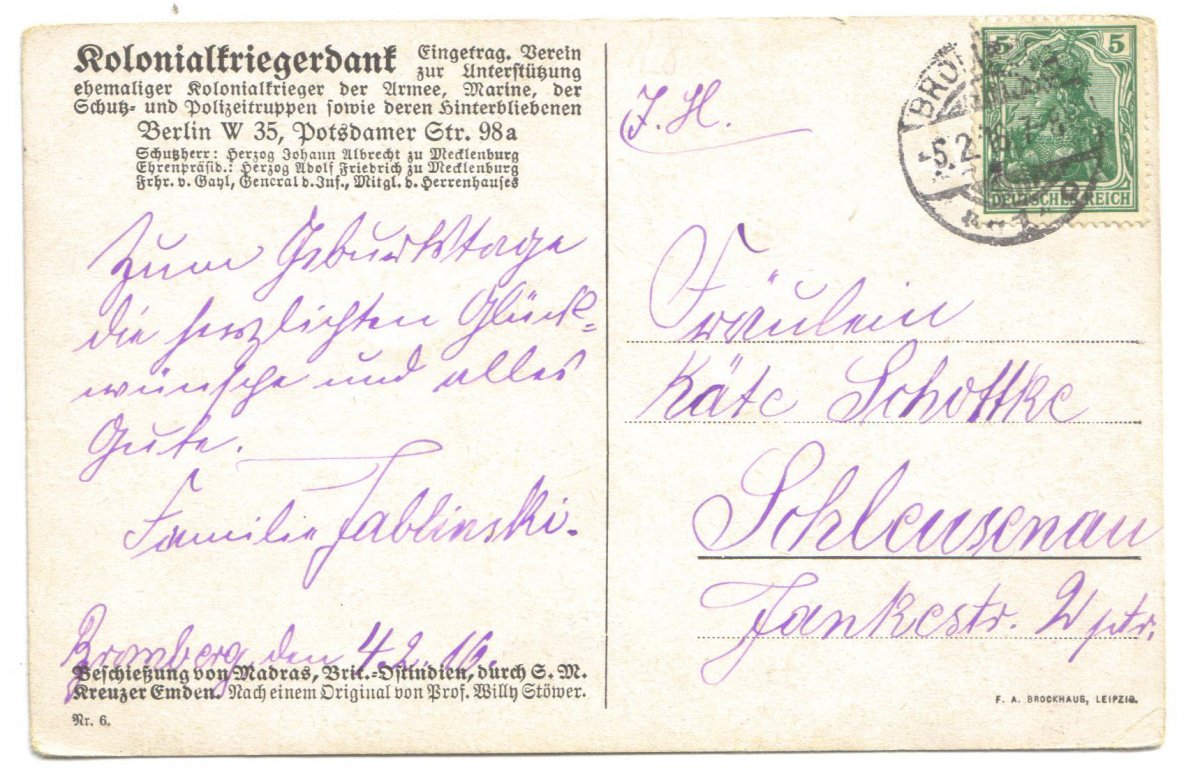 Kolonialkriegerdank Eingetrag. Verein
zur Unterstützung
ehemaliger Kolonialkrieger der Armee, Marine, der
Schutz- und Polizeitruppen sowie deren Hinterbliebenen
Berlin W 35, Potsdamer Str. 98a
Schutzherr: Herzog Johann Albrecht zu Mecklenburg
Ehrenpräsid.: Herzog Adolf Friedrich zu Mecklenburg
Frhr. v. Gayl, General d. Inf., Mitgl. d. Herrenhauses
Zum Geburtstage
die herzlichsten Glück-
wünsche und alles
Gute.
Familie Jablinski.
Bromberg den 4.2.16.
Beschießung von Madras, Brit.-Ostindien, durch S. M.
Kreuzer Emden. Nach einem Original von Prof. Willy Stöwer.
Nr. 6.
J. H.
5 5
DEUTSCHES REICH
BROM
5.2.16
Fräulein
Käte Schottke
Schleusenau
Jankestr. 2 ptr.
F. A. BROCKHAUS, LEIPZIG.